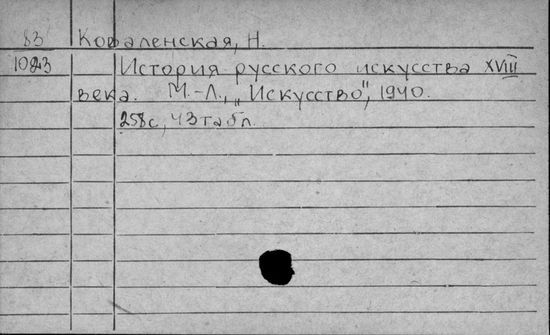 83 Коваленская, Н.
1023 История русского искусства XVIII
века. М.-Л., „Искусство", 1940.
258с., 43 табл.